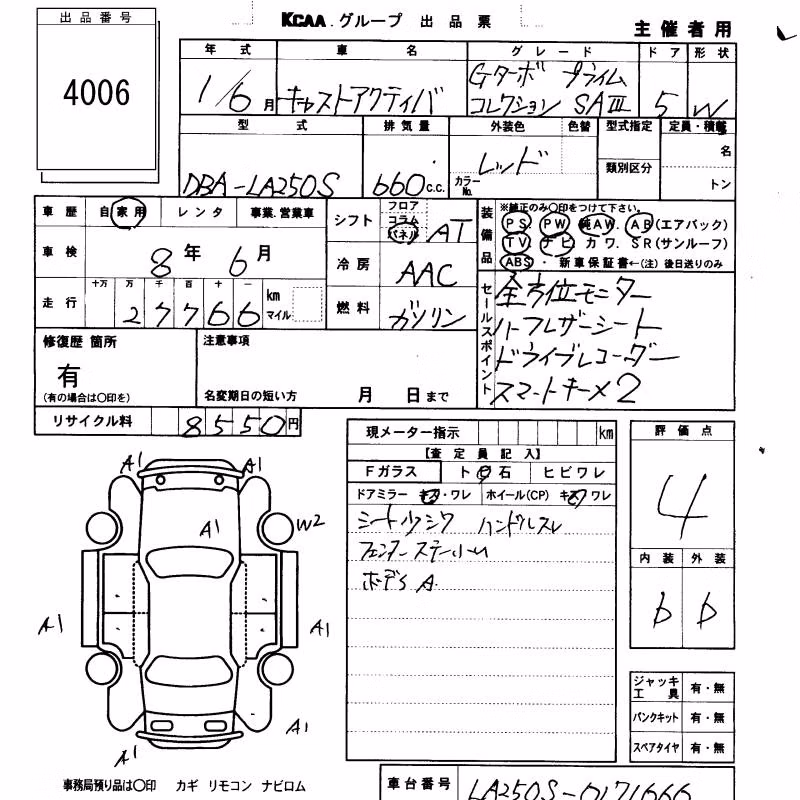 出品番号
4006
KCAA.グループ 出品票
主催者用
年式 車名 グレード ドア 形状
1/6月 キャストアクティバ Gターボ プライム コレクション SAⅢ 5 W
型式 排気量 外装色 色替 型式指定 定員・積載
DBA-LA250S 660c.c. レッド カラーNo. 類別区分 名 トン
車歴 自家用 レンタ 事業.営業車
シフト フロア コラム パネル AT
装備品 ※純正のみ○印をつけて下さい。
PS. PW 純AW. AB(エアバック)
TV ナビ カワ. SR(サンルーフ)
ABS・ 新車保証書←(注) 後日送りのみ
車検 8年 6月
冷房 AAC
走行 十万 万 千 百 十 一
27766 km マイル
燃料 ガソリン
セールスポイント
全方位モニター
ハーフレザーシート
ドライブレコーダー
スマートキー×2
修復歴 箇所
有
(有の場合は○印を)
注意事項
名変期日の短い方 月 日まで
リサイクル料 8550円
現メーター指示 km
【査定員記入】
Fガラス ト 石 ヒビワレ
ドアミラー キズ・ワレ ホイール(CP) キズ ワレ
シートリクシワ ハンドルスレ
フェンダーステー小ム
ボデーA
評価点
4
内装 外装
b b
A1 A1
A1 W2
A1 A1
A1
A1
ジャッキ工具 有・無
パンクキット 有・無
スペアタイヤ 有・無
事務局預り品は○印 カギ リモコン ナビロム
車台番号 LA250S-0171666